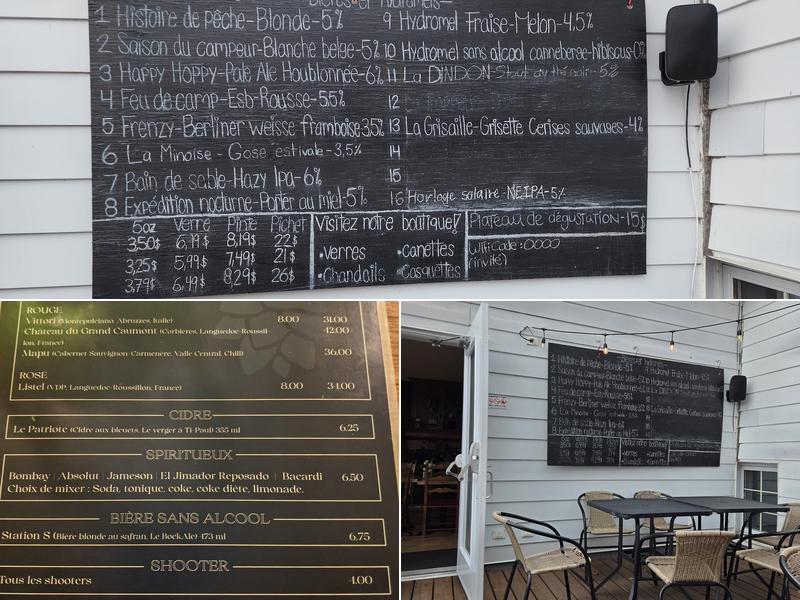 Bières et Hydromels
1 Histoire de pêche-Blonde-5%
2 Saison du campeur-Blanche belge-5%
3 Happy Hoppy-Pale Ale Houblonnée-6%
4 Feu de camp-Esb-Rousse-5,5%
5 Frenzy-Berliner weisse framboise 3,5%
6 La Minoise - Gose estivale-3,5%
7 Bain de sable-Hazy Ipa-6%
8 Expédition nocturne-Porter au miel-5%
9 Hydromel Fraise-Melon-4,5%
10 Hydromel sans alcool canneberge-hibiscus-0%
11 La DINDON-Stout au thé noir-5%
12
13 La Grisaille-Grisette Cerises sauvages-4%
14
15
16 Horloge solaire-NEIPA-5%
5oz Verre Pinte Pichet
3,50$ 6,19$ 8,19$ 22$
3,25$ 5,99$ 7,49$ 21$
3,79$ 6,49$ 8,29$ 26$
Visitez notre boutique!
•Verres •Canettes
•Chandails •Casquettes
Plateau de dégustation-15$
Wifi Code: 0000
(invité)
ROUGE
Vittori (Montepulciano, Abruzzes, Italie) 8.00 31.00
Chateau du Grand Caumont (Corbières, Languedoc-Roussil- 42.00
lon, France)
Mapu (Cabernet Sauvignon-Carmenère, Valle Central, Chili) 36.00
ROSÉ
Listel (VDP, Languedoc-Roussillon, France) 8.00 34.00
CIDRE
Le Patriote (Cidre aux bleuets, Le verger à Ti-Paul) 355 ml 6.25
SPIRITUEUX
Bombay | Absolut | Jameson | El Jimador Reposado | Bacardi 6.50
Choix de mixer : Soda, tonique, coke, coke diète, limonade.
BIÈRE SANS ALCOOL
Station S (Bière blonde au safran, Le BockAle) 473 ml 6.75
SHOOTER
Tous les shooters 4.00
1 Histoire de pêche-Blonde-5%
2 Saison du campeur-Blanche belge-5%
3 Happy Hoppy-Pale Ale Houblonnée-6%
4 Feu de camp-Esb-Rousse-5,5%